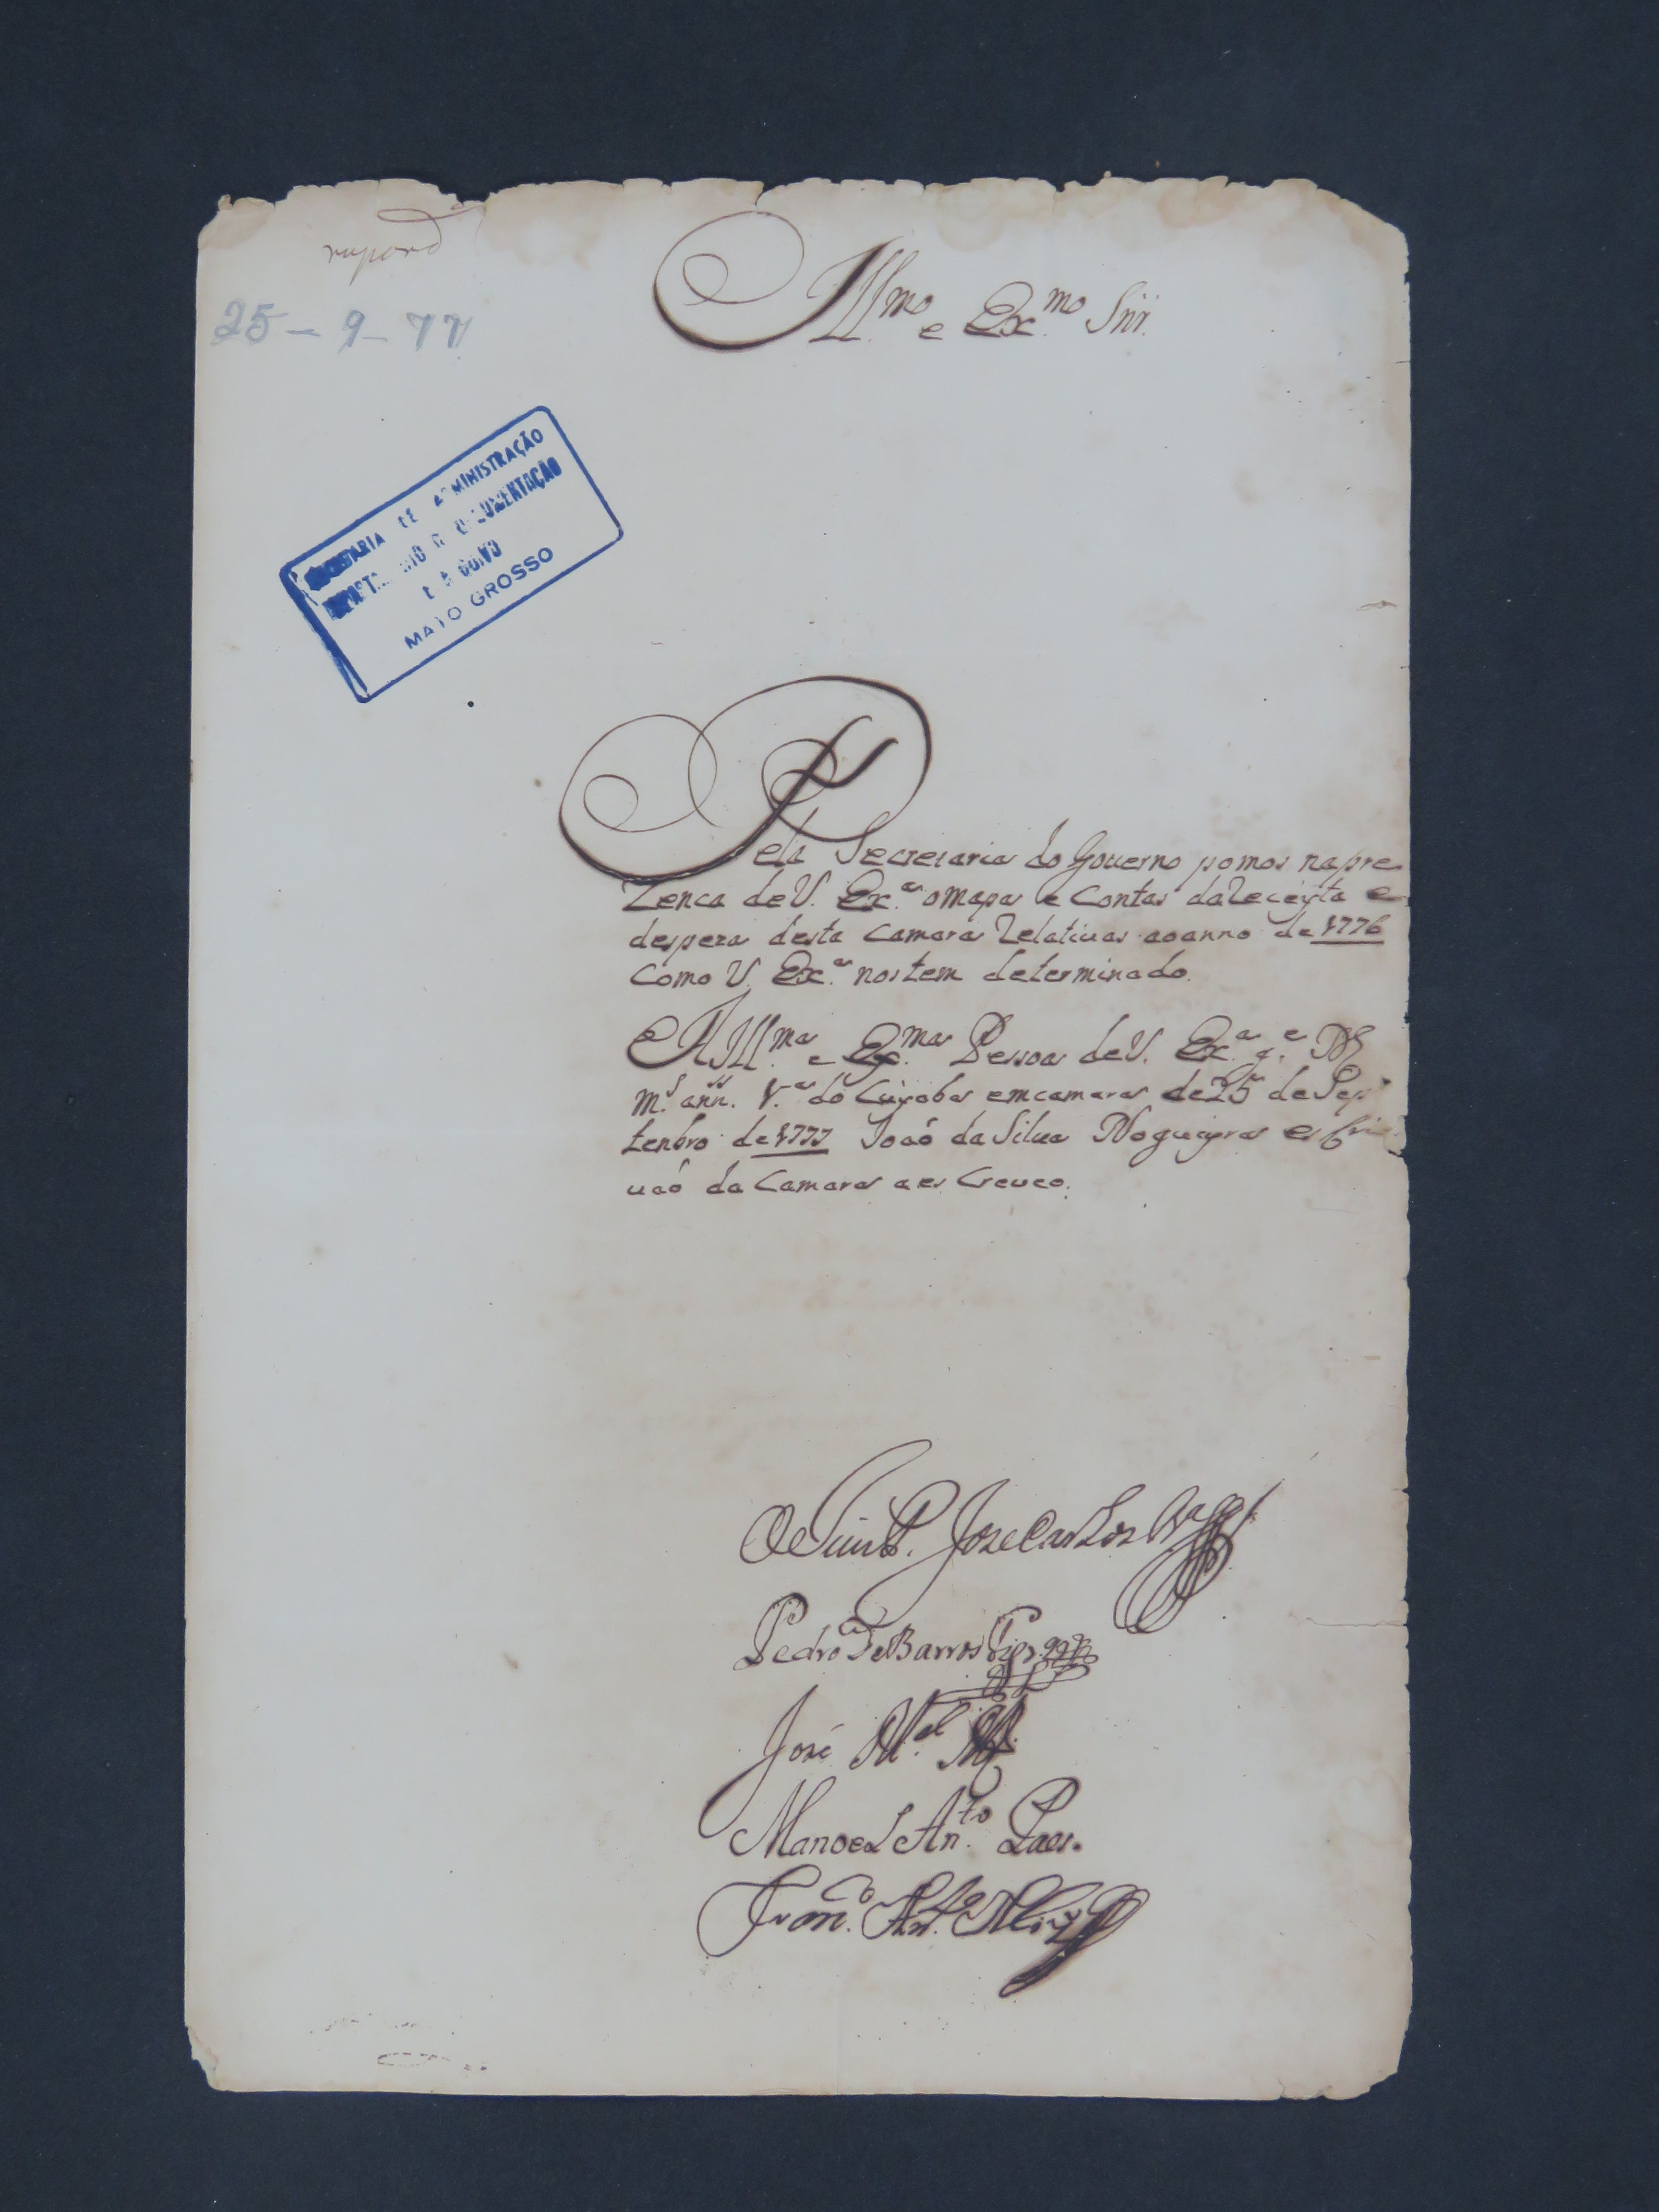 25-9-77
Illmo e Exmo Snr.
SECRETARIA DE ADMINISTRAÇÃO
DOCUMENTAÇÃO
MATO GROSSO
Pela Secretaria do Governo pomos napre
zenca de V. Exa o mapa e Contas da Receyta e
despeza desta Camara Relativas ao anno de 1776
Como V. Exa nos tem determinado.
A Illma e Exma Pessoa de V. Exa g.e
m.s ann. V.a do Cuyaba em camara de 25 de Sep
tenbro de 1777 Joaó da Silua Nogueyra escri
uaó da Camara a escreueo.
José Carlos
Pedro de Barros
José M.el
Manoel An.to Paes.
Fran.co An.to